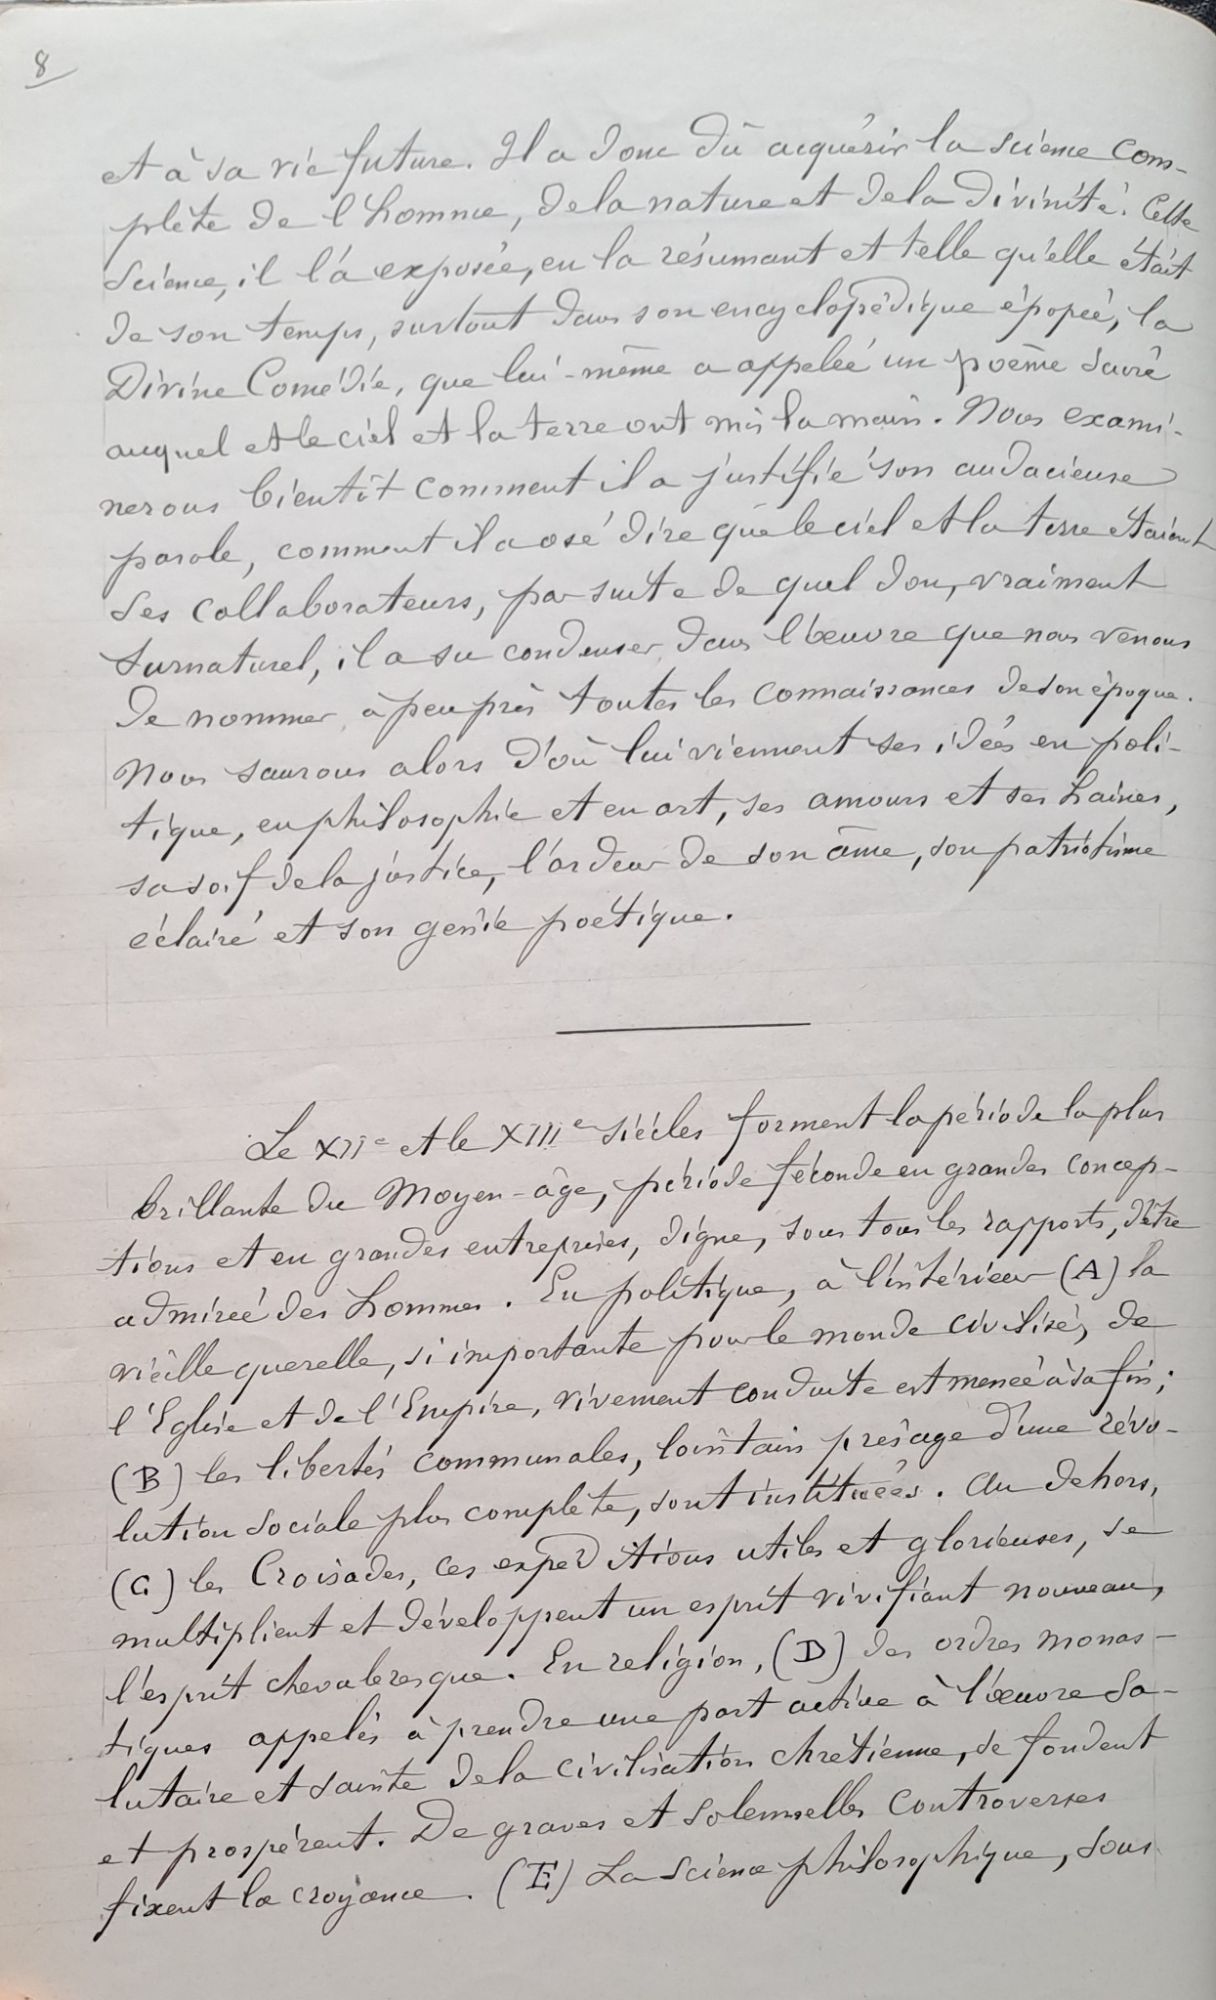 8
et à sa vie future. Il a donc dû acquérir la science com-
plète de l'homme, de la nature et de la divinité. Cette
science, il l'a exposée, en la résumant et telle qu'elle était
de son temps, surtout dans son encyclopédique épopée, la
Divine Comédie, que lui-même a appelée un poème sacré
auquel et le ciel et la terre ont mis la main. Nous exami-
nerons bientôt comment il a justifié son audacieuse
parole, comment il a osé dire que le ciel et la terre étaient
ses collaborateurs, par suite de quel don, vraiment
surnaturel, il a su condenser dans l'œuvre que nous venons
de nommer à peu près toutes les connaissances de son époque.
Nous saurons alors d'où lui viennent ses idées en poli-
tique, en philosophie et en art, ses amours et ses haines,
sa soif de la justice, l'ardeur de son âme, son patriotisme
éclairé et son génie poétique.
Le XIIe et le XIIIe siècles forment la période la plus
brillante du Moyen-âge, période féconde en grandes concep-
tions et en grandes entreprises, digne, sous tous les rapports, d'être
admirée des hommes. En politique, à l'intérieur (A) la
vieille querelle, si importante pour le monde civilisé, de
l'Eglise et de l'Empire, vivement conduite est menée à sa fin;
(B) les libertés communales, lointain présage d'une révo-
lution sociale plus complète, sont instituées. Au dehors,
(C) les Croisades, ces expéditions utiles et glorieuses, se
multiplient et développent un esprit vivifiant nouveau,
l'esprit chevaleresque. En religion, (D) des ordres monas-
tiques appelés à prendre une part active à l'œuvre sa-
lutaire et sainte de la civilisation chrétienne, se fondent
et prospèrent. De graves et solennelles controverses
fixent la croyance. (E) La science philosophique, sous